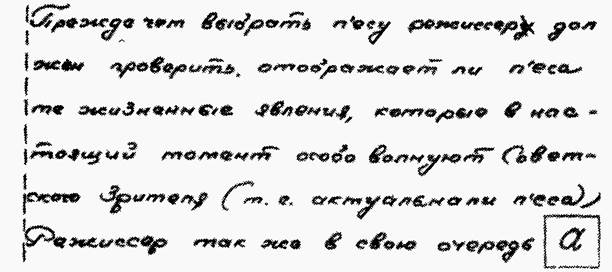 Прежде чем выбрать п'есу режиссеру дол
жен проверить, отображает ли п'еса
те жизненные явления, которые в нас-
тоящий момент особо волнуют Совет-
ского Зрителя (т. е. актуальна ли п'еса)
Режиссер так же в свою очередь а